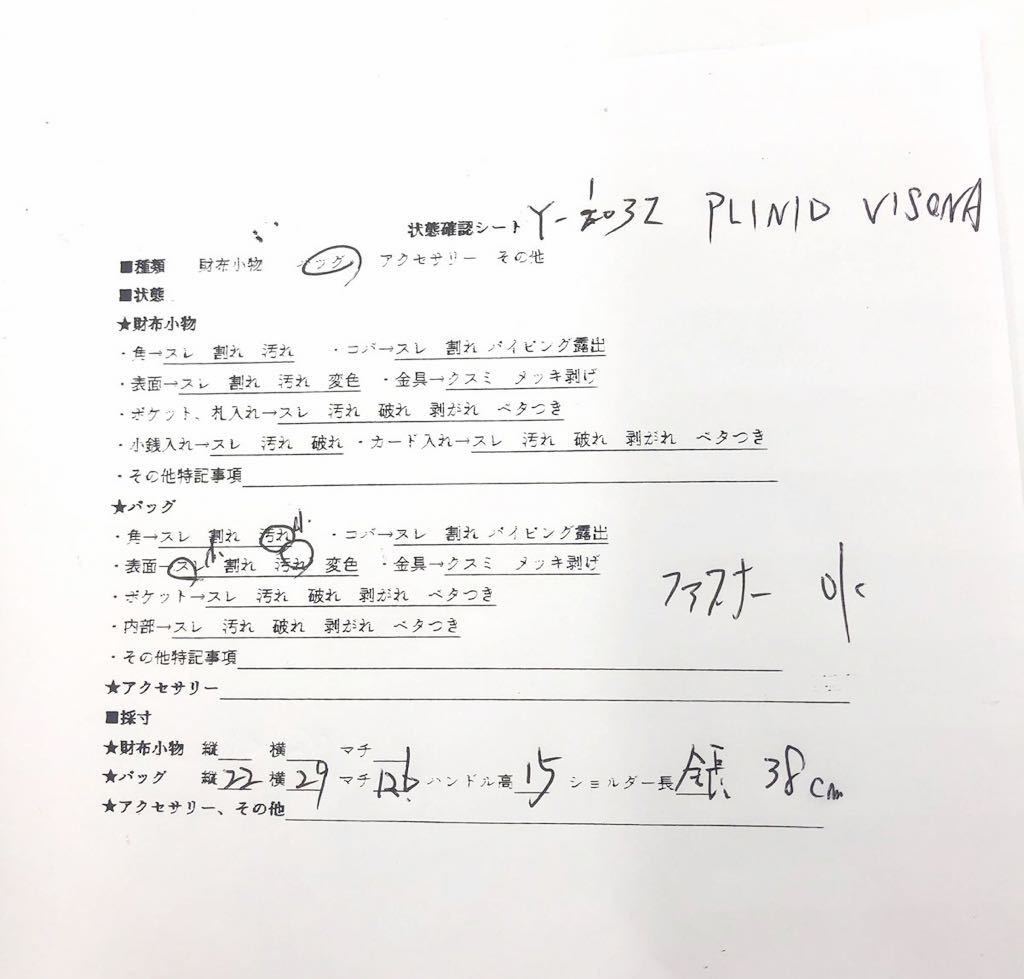 状態確認シート Y-1032 PLINIO VISONA
■種類 財布小物 バッグ アクセサリー その他
■状態
★財布小物
・角→スレ 割れ 汚れ ・コバ→スレ 割れ パイピング露出
・表面→スレ 割れ 汚れ 変色 ・金具→クスミ メッキ剥げ
・ポケット、札入れ→スレ 汚れ 破れ 剥がれ ベタつき
・小銭入れ→スレ 汚れ 破れ ・カード入れ→スレ 汚れ 破れ 剥がれ ベタつき
・その他特記事項
★バッグ
・角→スレ 割れ 汚れ 小. ・コバ→スレ 割れ パイピング露出
・表面→スレ 小. 割れ 汚れ 変色 ・金具→クスミ メッキ剥げ
ファスナー ok
・ポケット→スレ 汚れ 破れ 剥がれ ベタつき
・内部→スレ 汚れ 破れ 剥がれ ベタつき
・その他特記事項
★アクセサリー
■採寸
★財布小物 縦 横 マチ
★バッグ 縦22 横29 マチ12.5 ハンドル高15 ショルダー長 全長 38cm
★アクセサリー、その他